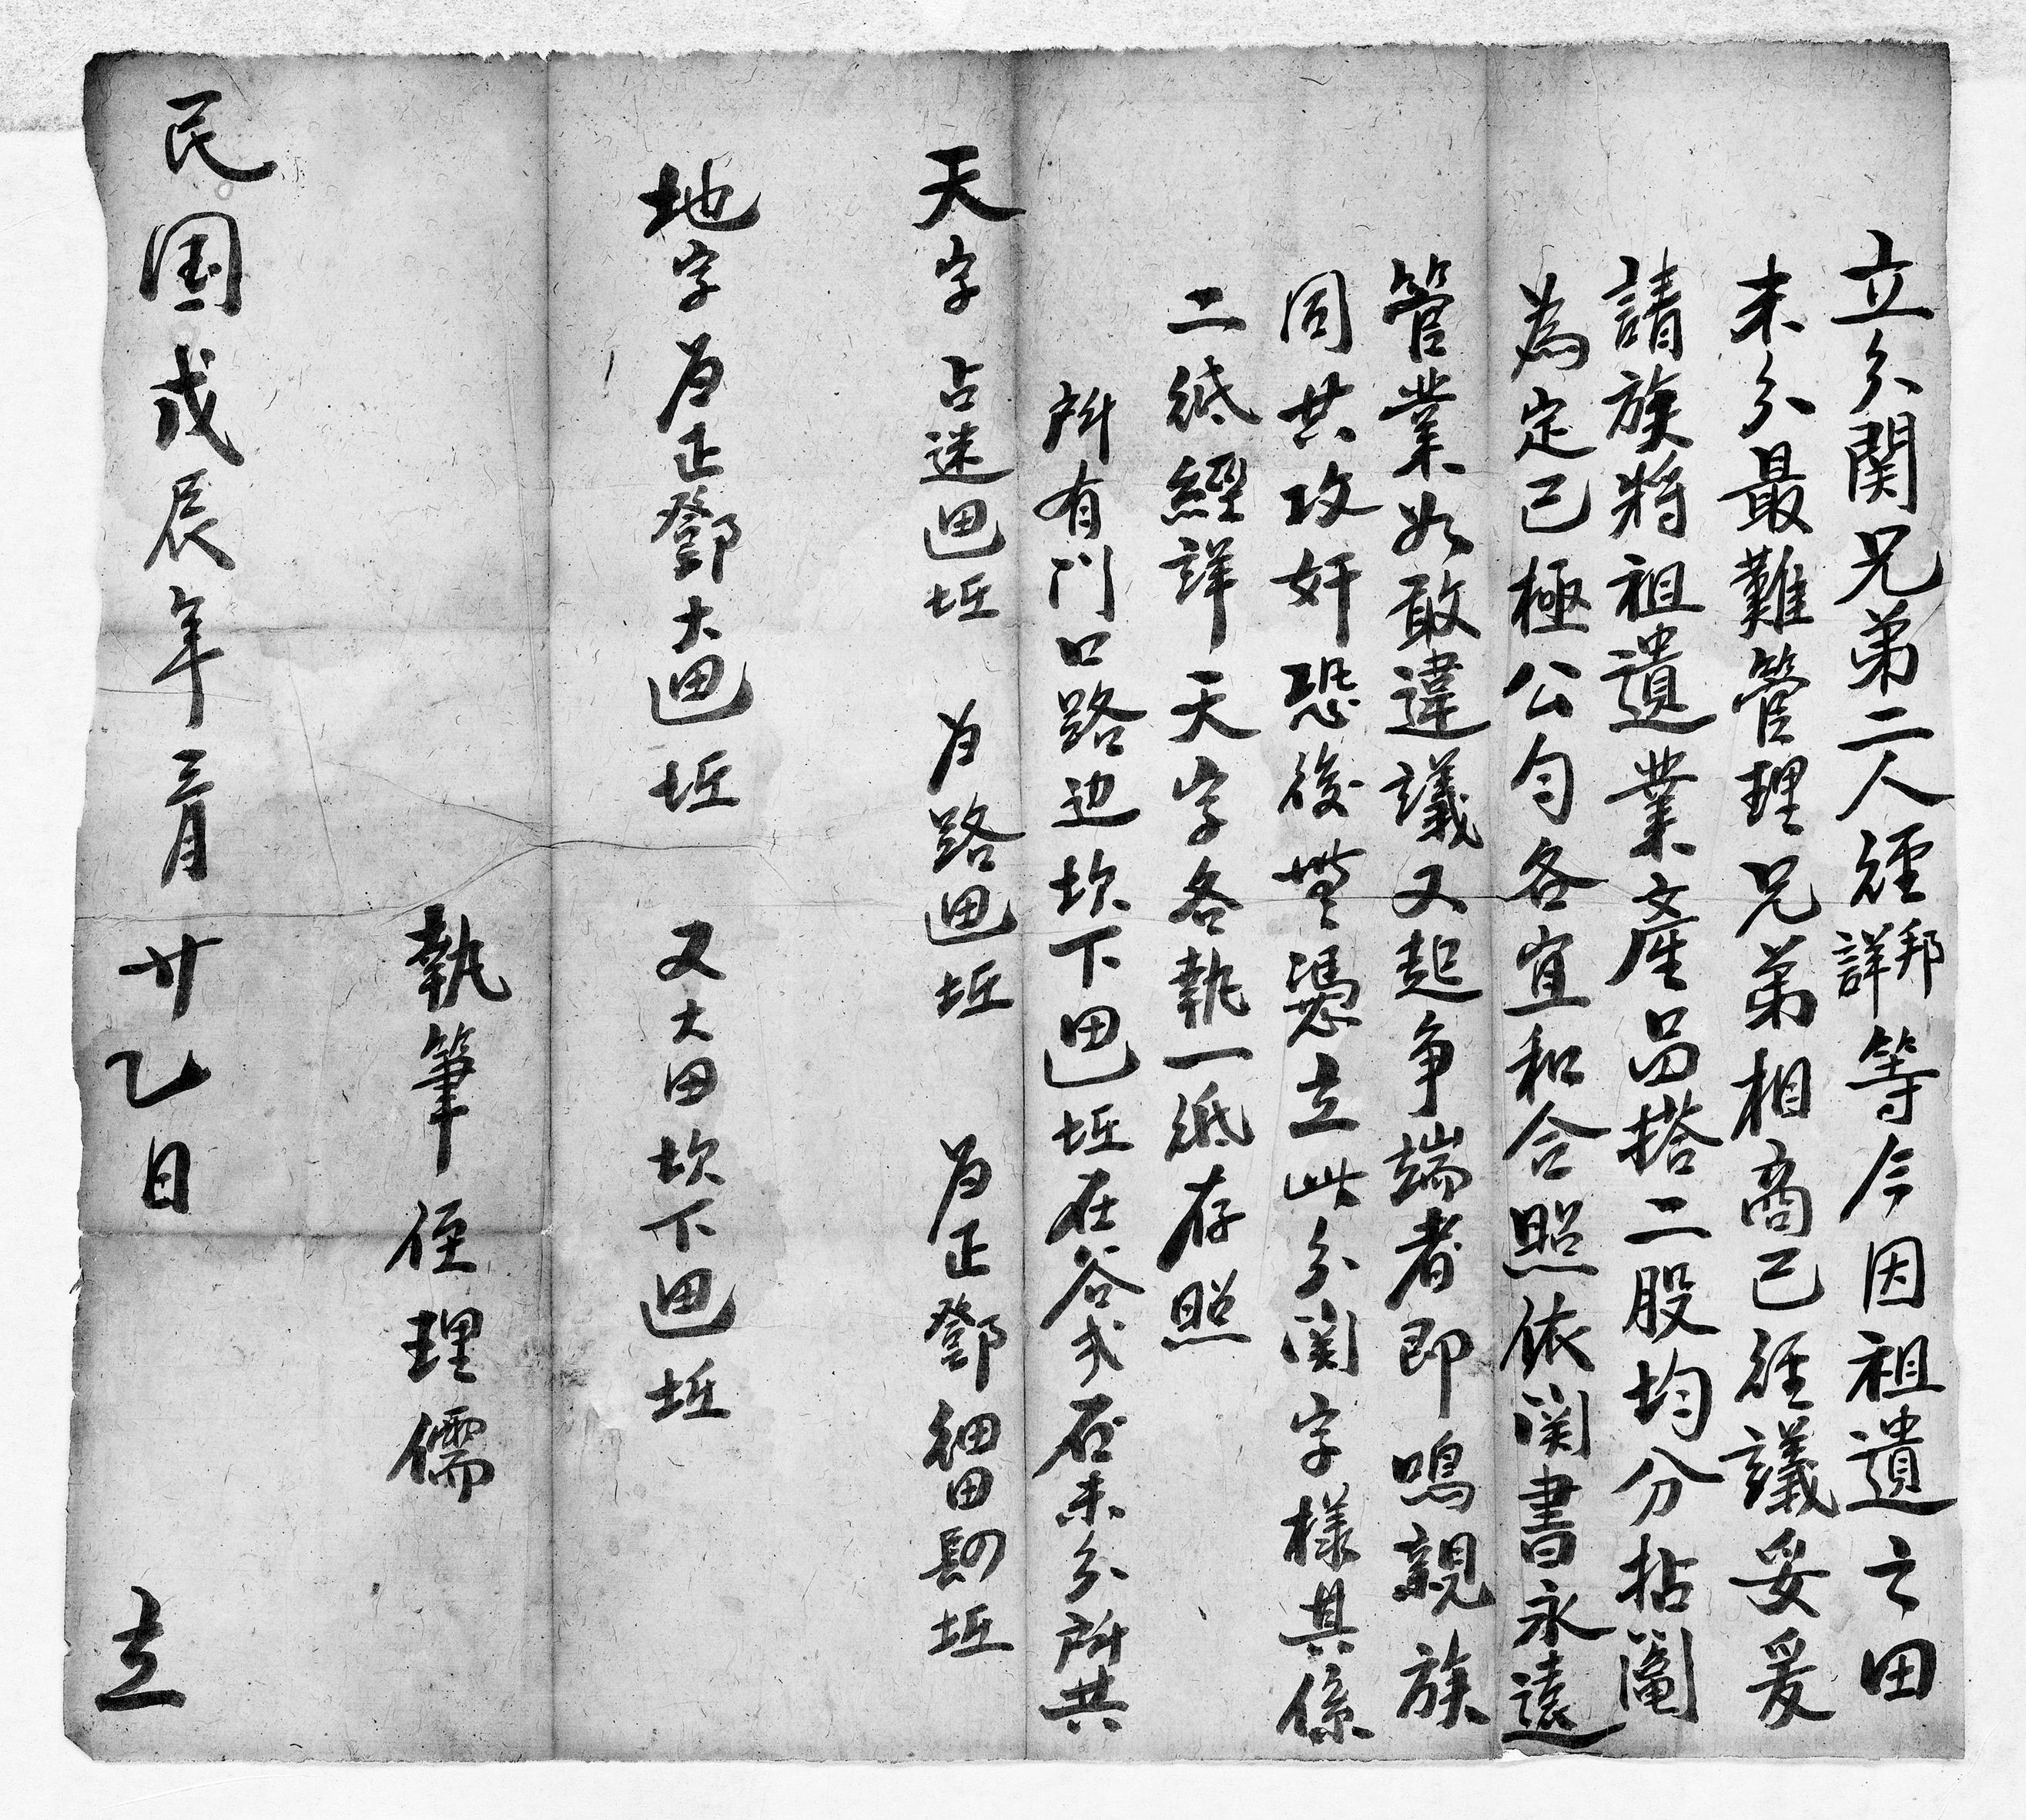 立分関兄弟二人經邦詳等今因祖遺之田
未分最難管理兄弟相商已經議妥爰
請族將祖遺業產品搭二股均分拈鬮
為定已極公勻各宜和合照依関書永遠
管業如敢違議又起争端者即鳴親族
同共攻奸恐後無憑立此分関字樣其係
二紙經詳天字各執一紙存照
所有門口路边坎下坵在谷弍石未分所共
天字占迷坵 为路坵 为正鄧細田坵
地字为正鄧大坵 又大田坎下坵
執筆侄理儒
民国戊辰年三月廿乙日 立